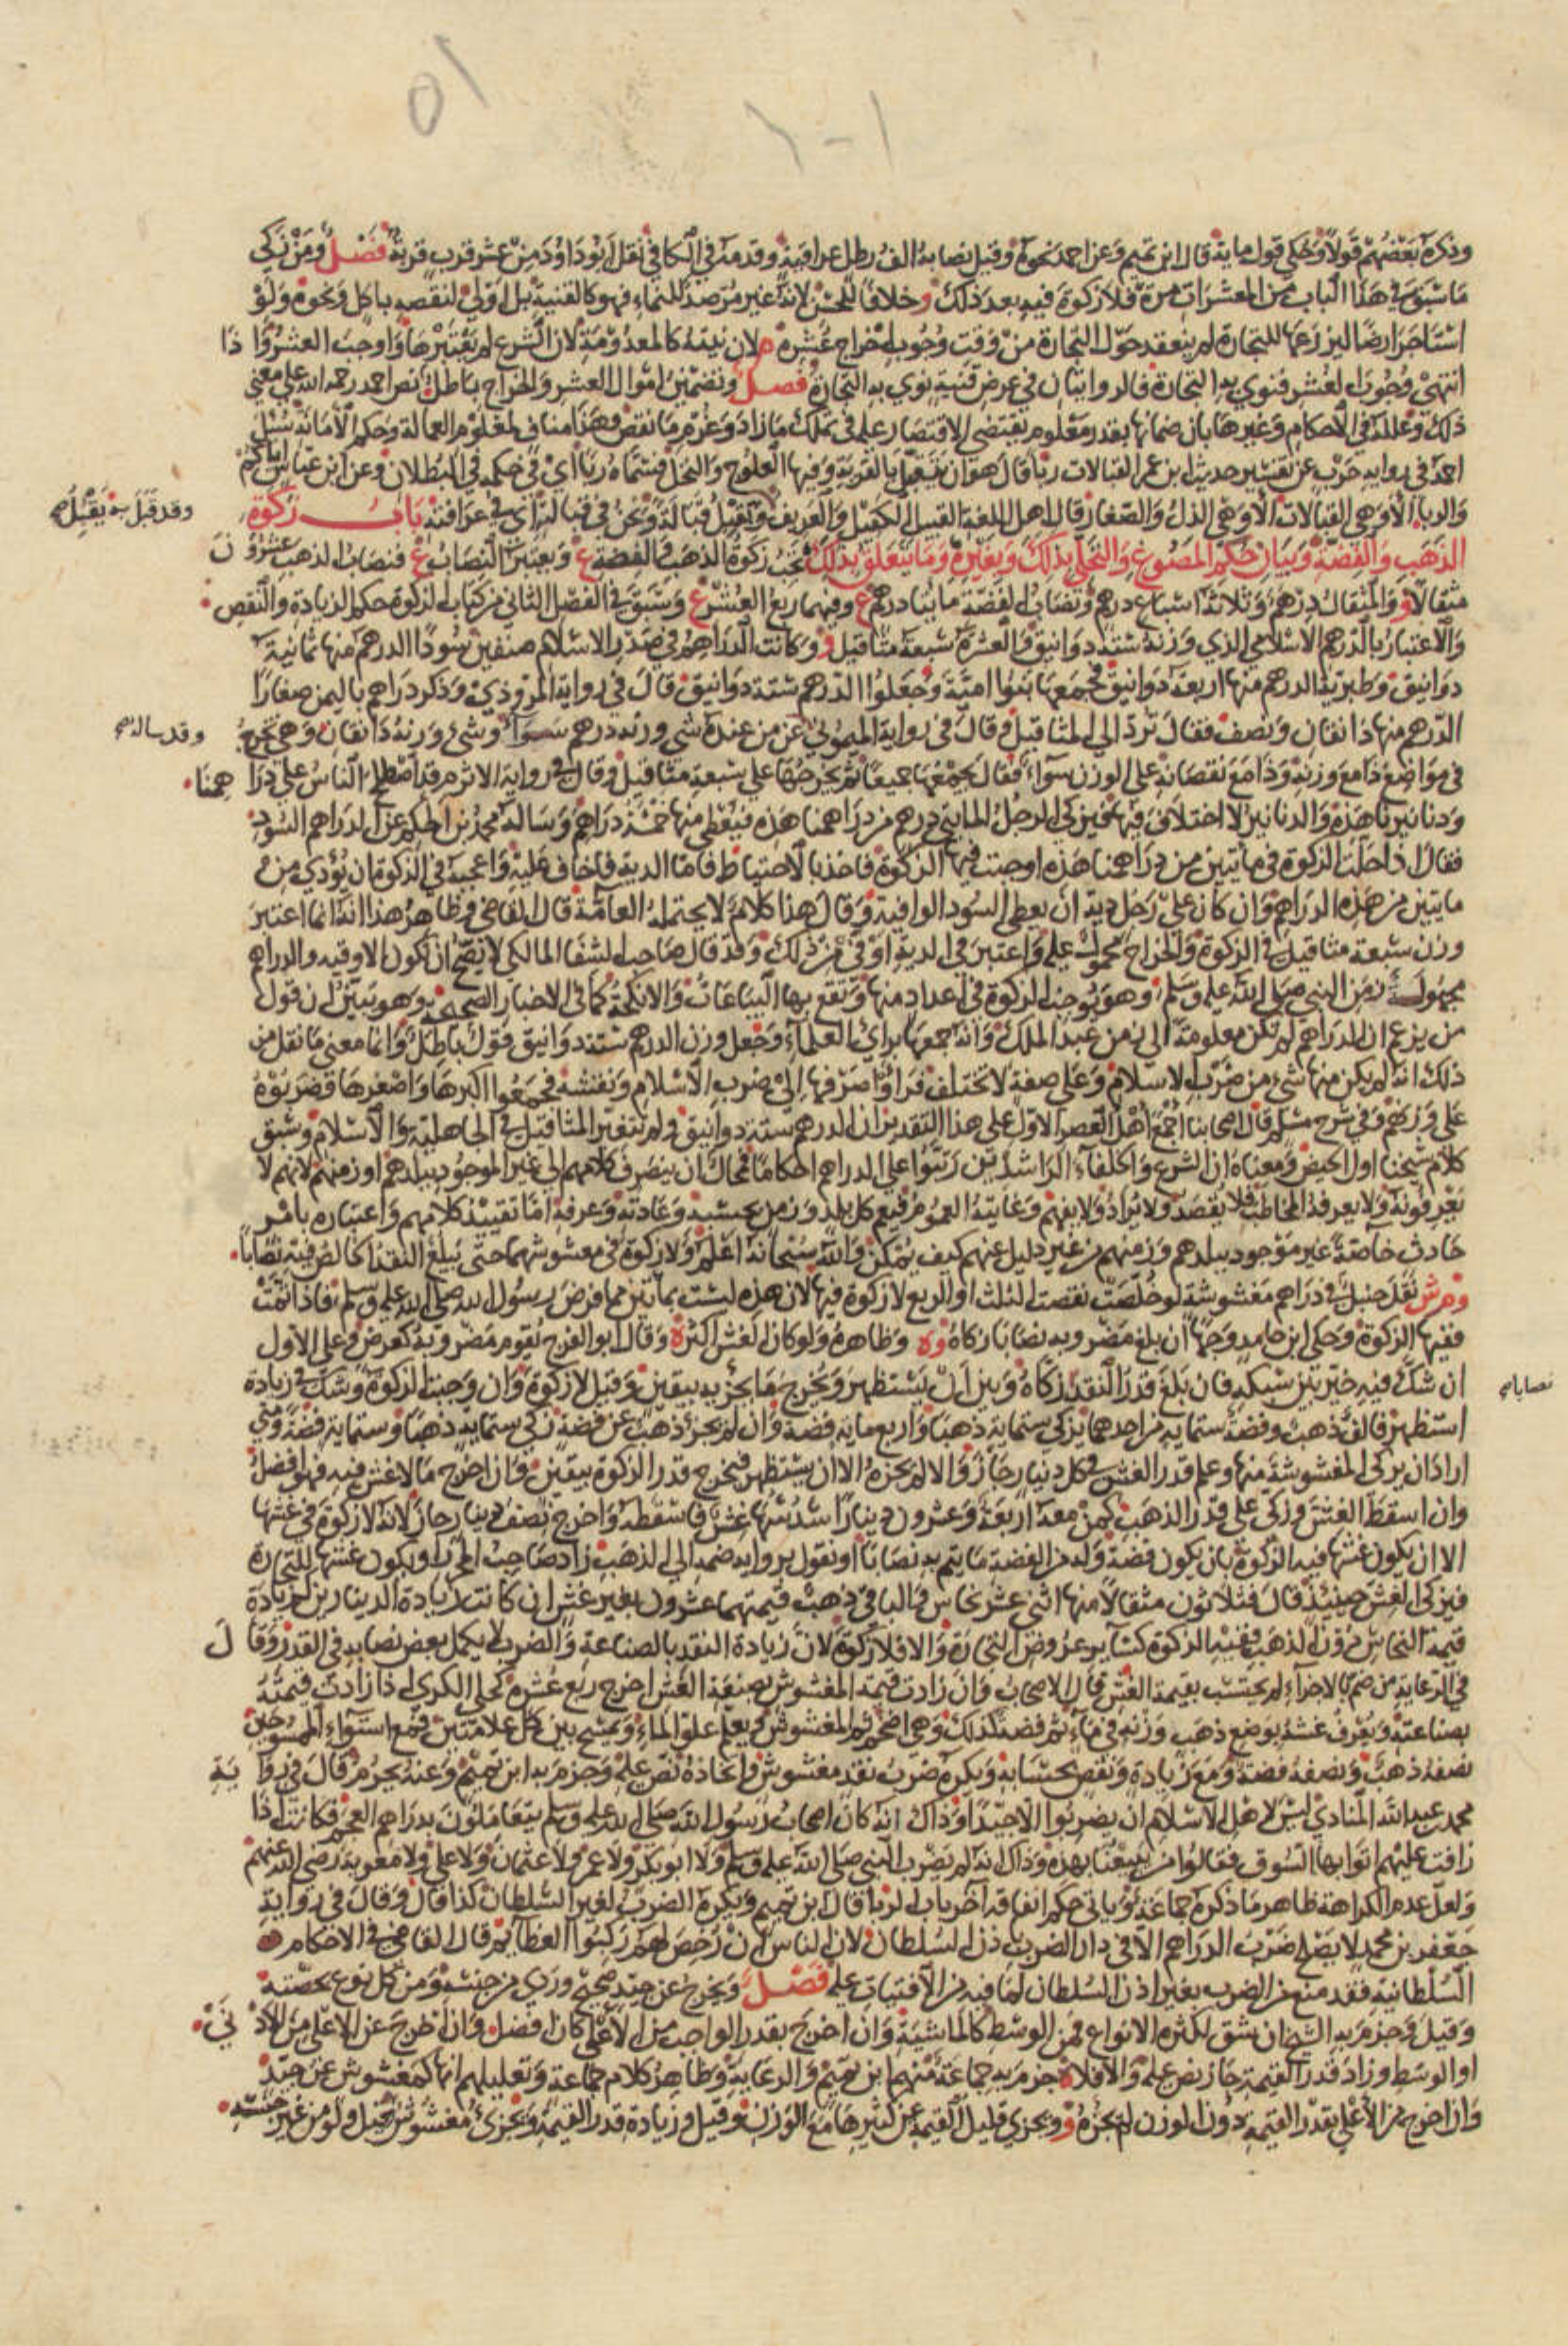 وذكره بعضهم قولا وحكي قول ماية قال ابن تميم وعن احمد نحوه وقيل نصابه الف رطل عراقية وقدمه في الكافي نقل ابوداود من عشر قرب قربة فصل ومن زكي
ما سبق في هذا الباب من المعشرات مرة فلا زكوة فيه بعد ذلك و خلافا للحسن لانه غير مرصد للنماء فهو كالقنية بل اولى لنقصه باكل ونحوه ولو
استاجر ارضا ليزرعها للتجارة لم ينعقد حول التجارة من وقت وجوب اخراج عشره م لان نيته كالمعدومة لان الشرع لم يعتبرها واوجب العشر واذا
انتهى وجوب العشر فنوي به التجارة فالروايتان في عرض قنية نوي به التجارة فصل وتضمين اموال العشر والخراج باطل نص احمد رحمه الله على معنى
ذلك وعلله في الاحكام وغيرها بان ضمانها بقدر معلوم يقتضي الاقتصار عليه في تملك ما زاد وغرم ما نقص وهذا مناف لمعلوم العمالة وحكم الامانة سئل
احمد في رواية حرب عن تفسير حديث ابن عمر القبالات ربا قال هو ان يتقبل بالقرية وفيها العلوج والنخل فسماه ربا اي في حكمه في البطلان وعن ابن عباس اياكم
والربا الا وهي القبالات الا وهي الذل والصغار قال اهل اللغة القبيل الكفيل والعريف وتقبل قبالة ونحن في قبالته اي في عرافته باب زكوة
وقد قبل به يقبل صح
الذهب والفضة وبيان حكم المصوغ والتحلي بذلك وبغيره وما يتعلق بذلك تجب زكوة الذهب والفضة ع ويعتبر النصاب ع فنصاب الذهب عشرون
مثقالا و والمثقال درهم وثلاثة اسباع درهم ونصاب الفضة مايتا درهم ع وفيهما ربع العشر ع وسبق في الفصل الثاني من كتاب الزكوة حكم الزيادة والنقص
والاعتبار بالدرهم الاسلامي الذي وزنه ستة دوانيق والعشرة سبعة مثاقيل و وكانت الدراهم في صدر الاسلام صنفين سودا الدرهم منها ثمانية
دوانيق وطبرية الدرهم منها اربعة دوانيق فجمعها بنوا امية وجعلوا الدرهم ستة دوانيق قال في رواية المروذي وذكر دراهم باليمن صغارا
الدرهم منها دانقان ونصف فقال ترد الى المثاقيل وقال في رواية الميموني عن من عنده شي وزنه درهم سوآ وشي وزنه دانقان وهي تخرج
وقد ساله صح
في مواضع ذا مع وزنه وذا مع نقصانه على الوزن سواء فقال يجمعها جميعا ثم يخرجها على سبعة مثاقيل وقال في رواية الاثرم قد اصطلح الناس على دراهمنا
ودنانيرنا هذه والدنانير لا اختلاف فيها فيزكي الرجل المايتي درهم من دراهمنا هذه فيعطي منها خمسة دراهم وساله محمد بن الحكم عن الدراهم السود
فقال اذا حلت الزكوة في مائتين من دراهمنا هذه اوجبت فيها الزكوة فاخذ بالاحتياط فاما الدية فاخاف عليه واعجبه في الزكوة ان يؤدي من
مايتين من هذه الدراهم وان كان على رجل دية ان يعطي السود الوافية وقال هذا كلام لا يحتمله العامة قال القاضي وظاهر هذا انه انما اعتبر
وزن سبعة مثاقيل في الزكوة والخراج محمول عليه واعتبر في الدية اوفى من ذلك وقد قال صاحب الشفا المالكي لا يصح ان تكون الاوقية والدراهم
مجهولة زمن النبي صلى الله عليه وسلم وهو يوجب الزكوة في اعداد منها وتقع بها البياعات والانكحة كما في الاخبار الصحيحة وهو يبين ان قول
من يزعم ان الدراهم لم تكن معلومة الى زمن عبد الملك وانه جمعها براي العلماء وجعل وزن الدرهم ستة دوانيق قول باطل وانما معنى ما نقل من
ذلك انه لم يكن منها شيء من ضرب الاسلام وعلى صفة لا تختلف فراوا صرفها الى ضرب الاسلام ونقشه فجمعوا اكبرها واصغرها وضربوه
على وزنهم وفي شرح مسلم قال اصحابنا اجمع اهل العصر الاول على هذا التقدير ان الدرهم ستة دوانيق ولم تتغير المثاقيل في الجاهلية والاسلام وسبق
كلام شيخنا اول الحيض ومعناه ان الشرع والخلفاء الراشدين رتبوا على الدراهم احكاما فمحال ان ينصرف كلامهم الى غير الموجود ببلدهم او زمنهم لانهم لا
يعرفونه ولا يعرفه المخاطب فلا يقصد ولا يراد ولا يفهم وغايته العموم فيعم كل بلد وزمن بحسبه وعادته وعرفه اما تقييد كلامهم واعتباره بامر
حادث خاصة غير موجود ببلدهم وزمنهم من غير دليل عنهم كيف يمكن والله سبحانه اعلم ولا زكوة في مغشوشهما حتى يبلغ النقد الخالص فيه نصابا
وم ش نقل حنبل في دراهم مغشوشة لو خلصت نقصت الثلث او الربع لا زكوة فيها لان هذه ليست بمائتين مما فرض رسول الله صلى الله عليه وسلم فاذا تمت
ففيها الزكوة وحكى ابن حامد وجها ان بلغ مضروبه نصابا زكاه وه وظاهره ولو كان الغش اكثر ه وقال ابو الفرج يقوم مضروبه كعرض وعلى الاول
ان شك فيه خير بين سبكه فان بلغ قدر النقد زكاه وبين ان يستظهر ويخرج ما يجزيه بيقين وقيل لا زكوة وان وجبت الزكوة وشك في زيادة
نصابا صح
استظهر فالف ذهب وفضة ستماية من احدهما يزكي ستماية ذهبا واربع ماية فضة وان لم يجز ذهب عن فضة زكي ستماية ذهبا وستماية فضة ومتى
اراد ان يزكي المغشوشة منها وعلم قدر الغش في كل دينار جاز والا لم يجزه الا ان يستظهر فيخرج قدر الزكوة بيقين وان اخرج ما لا غش فيه فهو افضل
وان اسقط الغش وزكى على قدر الذهب كمن معه اربعة وعشرون دينارا سدسها غش فاسقطه واخرج نصف دينار جاز لانه لا زكوة في غشها
الا ان يكون غشها فيه الزكوة بان يكون فضة وله من الفضة ما يتم به نصابا او نقول برواية ضمه الى الذهب زاد صاحب المحرر او يكون غشها للتجارة
فيزكى الغش حينيذ قال فثلاثون مثقالا منها اثني عشر نحاس والباقي ذهب قيمتهما عشرون بغير غش ان كانت زيادة الدينارين لزيادة
قيمة النحاس دون الذهب ففيه الزكوة كساير عروض التجارة والا فلا زكوة لان زيادة النقد بالصناعة والضرب لا يكمل بعض نصابه في القدر وقال
في الرعاية من ضم بالاجزاء لم يحتسب بقيمة الغش قال الاصحاب وان زادت قيمة المغشوش بصنعة الغش اخرج ربع عشره كحلي الكرى اذا زادت قيمته
بصناعته ويعرف غشه بوضع ذهب وزنه في ماء ثم فضة كذلك وهي اضخم ثم المغشوش ويعلم علو الماء ويمسح بين كل علامتين فمع استواء الممسوحين
نصفه ذهب ونصفه فضة ومع زيادة ونقص بحسابه ويكره ضرب نقد مغشوش واتخاذه نص عليه وجزم به ابن تميم وعنه يحرم قال في رواية
محمد بن عبيد الله المنادي ليس لاهل الاسلام ان يضربوا الا جيدا وذاك انه كان اصحاب رسول الله صلى الله عليه وسلم يتعاملون بدراهم العجم فكانت اذا
زافت عليهم اتوا بها السوق فقالوا من يبيعنا بهذه وذاك انه لم يضرب النبي صلى الله عليه وسلم ولا ابو بكر ولا عمر ولا عثمان ولا علي ولا معوية رضي الله عنهم
ولعل عدم الكراهة ظاهر ما ذكره جماعة وياتي حكم انفاقه آخر باب الربا قال ابن تميم ويكره الضرب لغير السلطان كذا قال وقال في رواية
جعفر بن محمد لا يصلح ضرب الدراهم الا في دار الضرب باذن السلطان لان الناس ان رخص لهم ركبوا العظايم قال القاضي في الاحكام
السلطانية فقد منع من الضرب بغير اذن السلطان لما فيه من الافتيات عليه فصل ويخرج عن جيد صحيح وردي من جنسه ومن كل نوع بحصته
وقيل وجزم به الشيخ ان شق لكثرة الانواع فمن الوسط كالماشية وان اخرج بقدر الواجب من الاعلى كان افضل وان اخرج عن الاعلى من الادنى
او الوسط وزاد قدر القيمة جاز نص عليه والا فلا وجزم به جماعة منهم ابن تميم والرعاية وظاهر كلام جماعة وتعليلهم انها كمغشوش عن جيد
وان اخرج من الاعلى بقدر القيمة دون الوزن لم يجزه و ويجزي قليل القيمة عن كثيرها مع الوزن وقيل وزيادة قدر القيمة ويجزئ مغشوش قيل ولو من غير جنسه